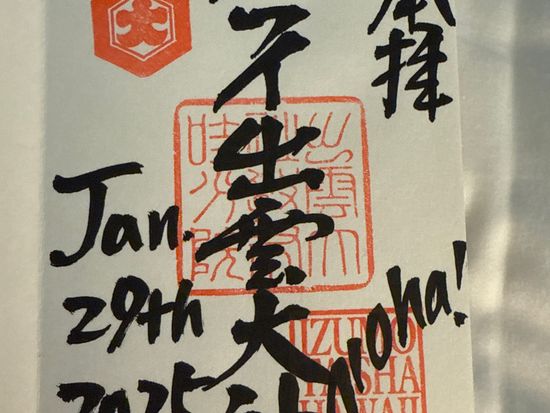 奉拝
ワイ出雲大
Jan.
29th
2025
Aloha!
IZUMO
TAISHA
HAWAII